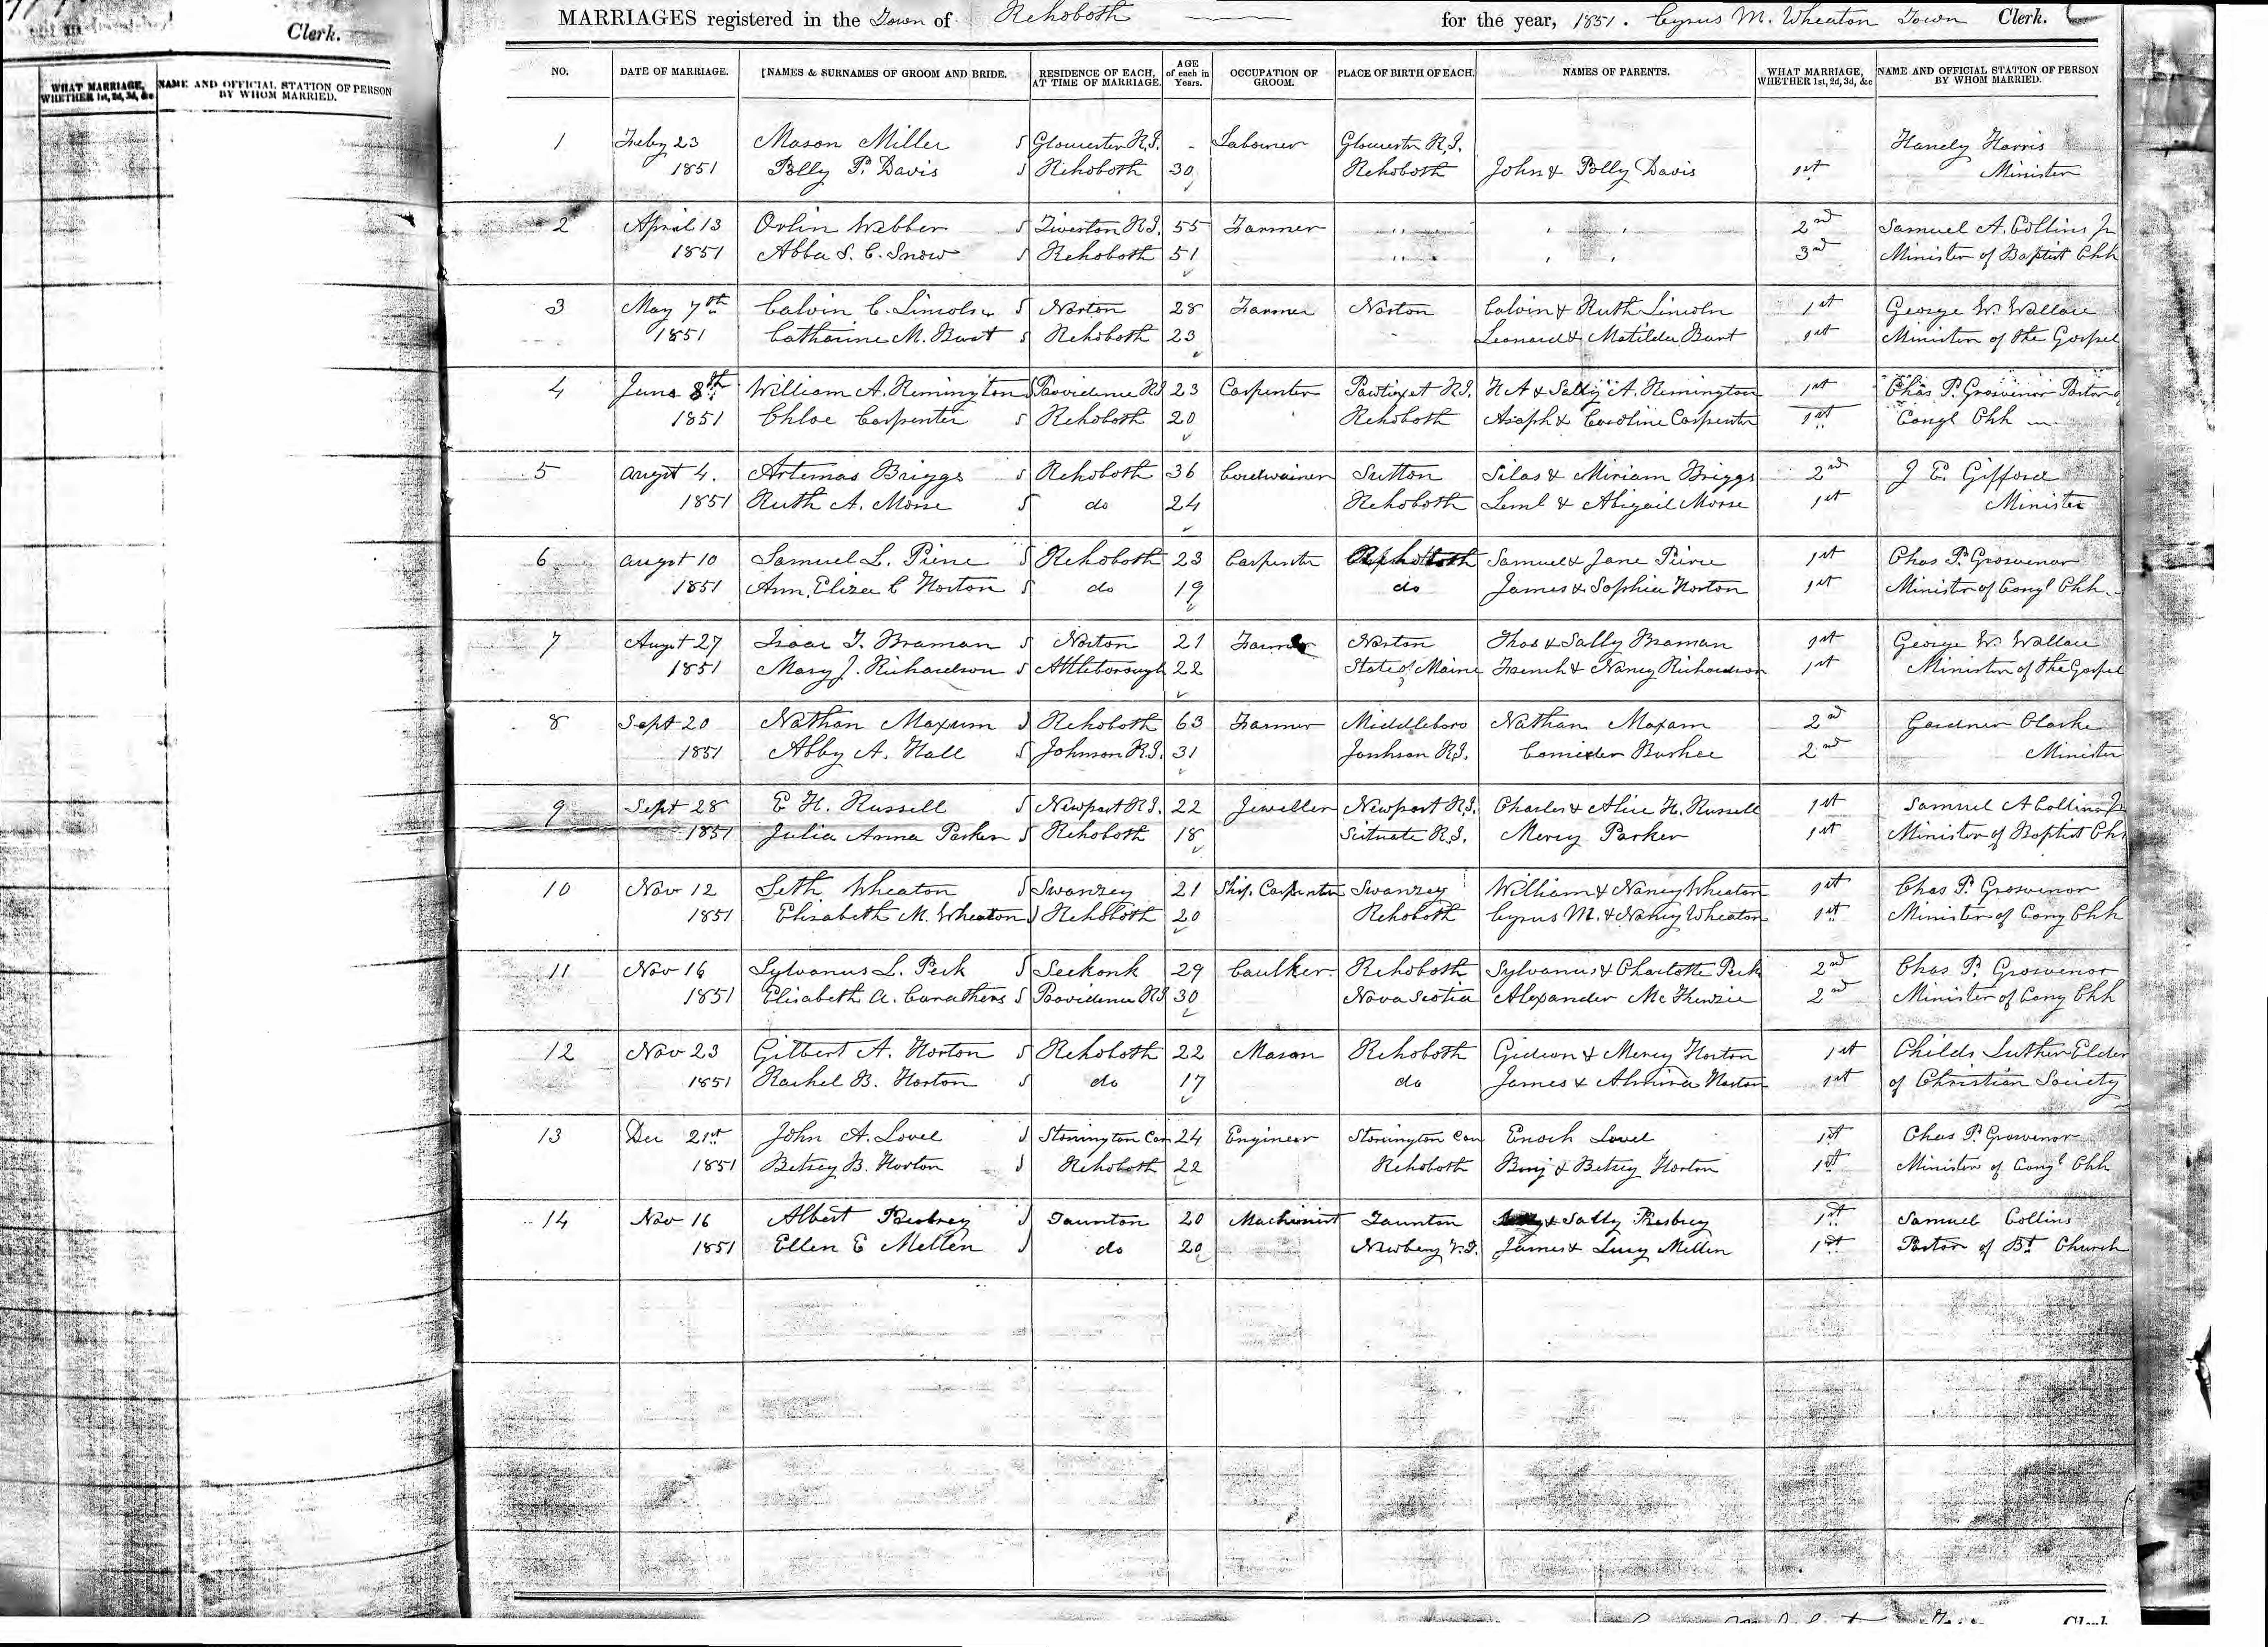 Clerk.
WHAT MARRIAGE, WHETHER 1st, 2d, 3d, &c
NAME AND OFFICIAL STATION OF PERSON BY WHOM MARRIED.
MARRIAGES registered in the Town of Rehoboth for the year, 1851. Cyrus M. Wheaton Town Clerk.
NO. DATE OF MARRIAGE. NAMES & SURNAMES OF GROOM AND BRIDE. RESIDENCE OF EACH, AT TIME OF MARRIAGE. AGE of each in Years. OCCUPATION OF GROOM. PLACE OF BIRTH OF EACH. NAMES OF PARENTS. WHAT MARRIAGE, WHETHER 1st, 2d, 3d, &c NAME AND OFFICIAL STATION OF PERSON BY WHOM MARRIED.
1 Feby 23 Mason Miller Gloucester R.I. - Labourer Gloucester R.I. Handy Harris
1851 Polly P. Davis Rehoboth 30 Rehoboth John & Polly Davis 1st Minister
2 April 13 Orlin Webber Tiverton R.I. 55 Farmer " " " 2nd Samuel A. Collins Jr
1851 Abba S. C. Snow Rehoboth 51 " " " 3rd Minister of Baptist Chh
3 May 7th Calvin C. Lincoln Norton 28 Farmer Norton Calvin & Ruth Lincoln 1st George W. Wallace
1851 Catharine M. Burt Rehoboth 23 Leonard & Matilda Burt 1st Minister of the Gospel
4 June 8th William A. Remington Providence RI 23 Carpenter Pawtuxet R.I. H A & Sally A. Remington 1st Chas P. Grosvenor Pastor
1851 Chloe Carpenter Rehoboth 20 Rehoboth Asaph & Caroline Carpenter 1st Congl Chh
5 Augst 4. Artemas Briggs Rehoboth 36 Cordwainer Sutton Silas & Miriam Briggs 2nd J E. Gifford
1851 Ruth A. Morse do 24 Rehoboth Leml & Abigail Morse 1st Minister
6 Augst 10 Samuel L. Pierce Rehoboth 23 Carpenter Rehoboth Samuel & Jane Peirce 1st Chas P. Grosvenor
1851 Ann Eliza C Horton do 19 do James & Sophia Horton 1st Minister of Congl Chh
7 Augst 27 Isaac T. Braman Norton 21 Farmer Norton Thos & Sally Braman 1st George W. Wallace
1851 Mary J. Richardson Attleborough 22 State of Maine French & Nancy Richardson 1st Minister of the Gospel
8 Sept 20 Nathan Maxum Rehoboth 63 Farmer Middleboro Nathan Maxam 2nd Gardner Clarke
1851 Abby A. Hall Johnson R.I. 31 Jonhson R.I. Burhee 2nd Minister
9 Sept 28 E. H. Russell Newport R.I. 22 Jeweller Newport R.I. Charles & Alice H. Russell 1st Samuel A Collins Jr
1851 Julia Anna Parker Rehoboth 18 Scituate R.I. Mercy Parker 1st Minister of Baptist Ch
10 Nov 12 Seth Wheaton Swanzey 21 Ship Carpenter Swanzey William & Nancy Wheaton 1st Chas P. Grosvenor
1851 Elisabeth M. Wheaton Rehoboth 20 Rehoboth Cyrus M. & Nancy Wheaton 1st Minister of Cong Chh
11 Nov 16 Sylvanus L. Peck Seekonk 29 Caulker Rehoboth Sylvanus & Charlotte Peck 2nd Chas P. Grosvenor
1851 Elisabeth A. Carathers Providence RI 30 Nova Scotia Alexander McKenzie 2nd Minister of Cong Chh
12 Nov 23 Gilbert A. Horton Rehoboth 22 Mason Rehoboth Gideon & Mercy Horton 1st Childs Luther Elder
1851 Rachel B. Horton do 17 do James & Almira Horton 1st of Christian Society
13 Dec 21st John A. Lovel Stonington Con 24 Engineer Stonington Con Enoch Lovel 1st Chas P. Grosvenor
1851 Betsey B. Horton Rehoboth 22 Rehoboth Benj & Betsey Horton 1st Minister of Congl Chh
14 Nov 16 Albert Presbrey Taunton 20 Machinist Taunton & Sally Presbrey 1st Samuel Collins
1851 Ellen E Mellen do 20 Newberg James & Lucy Mellen 1st Pastor of Bt Church